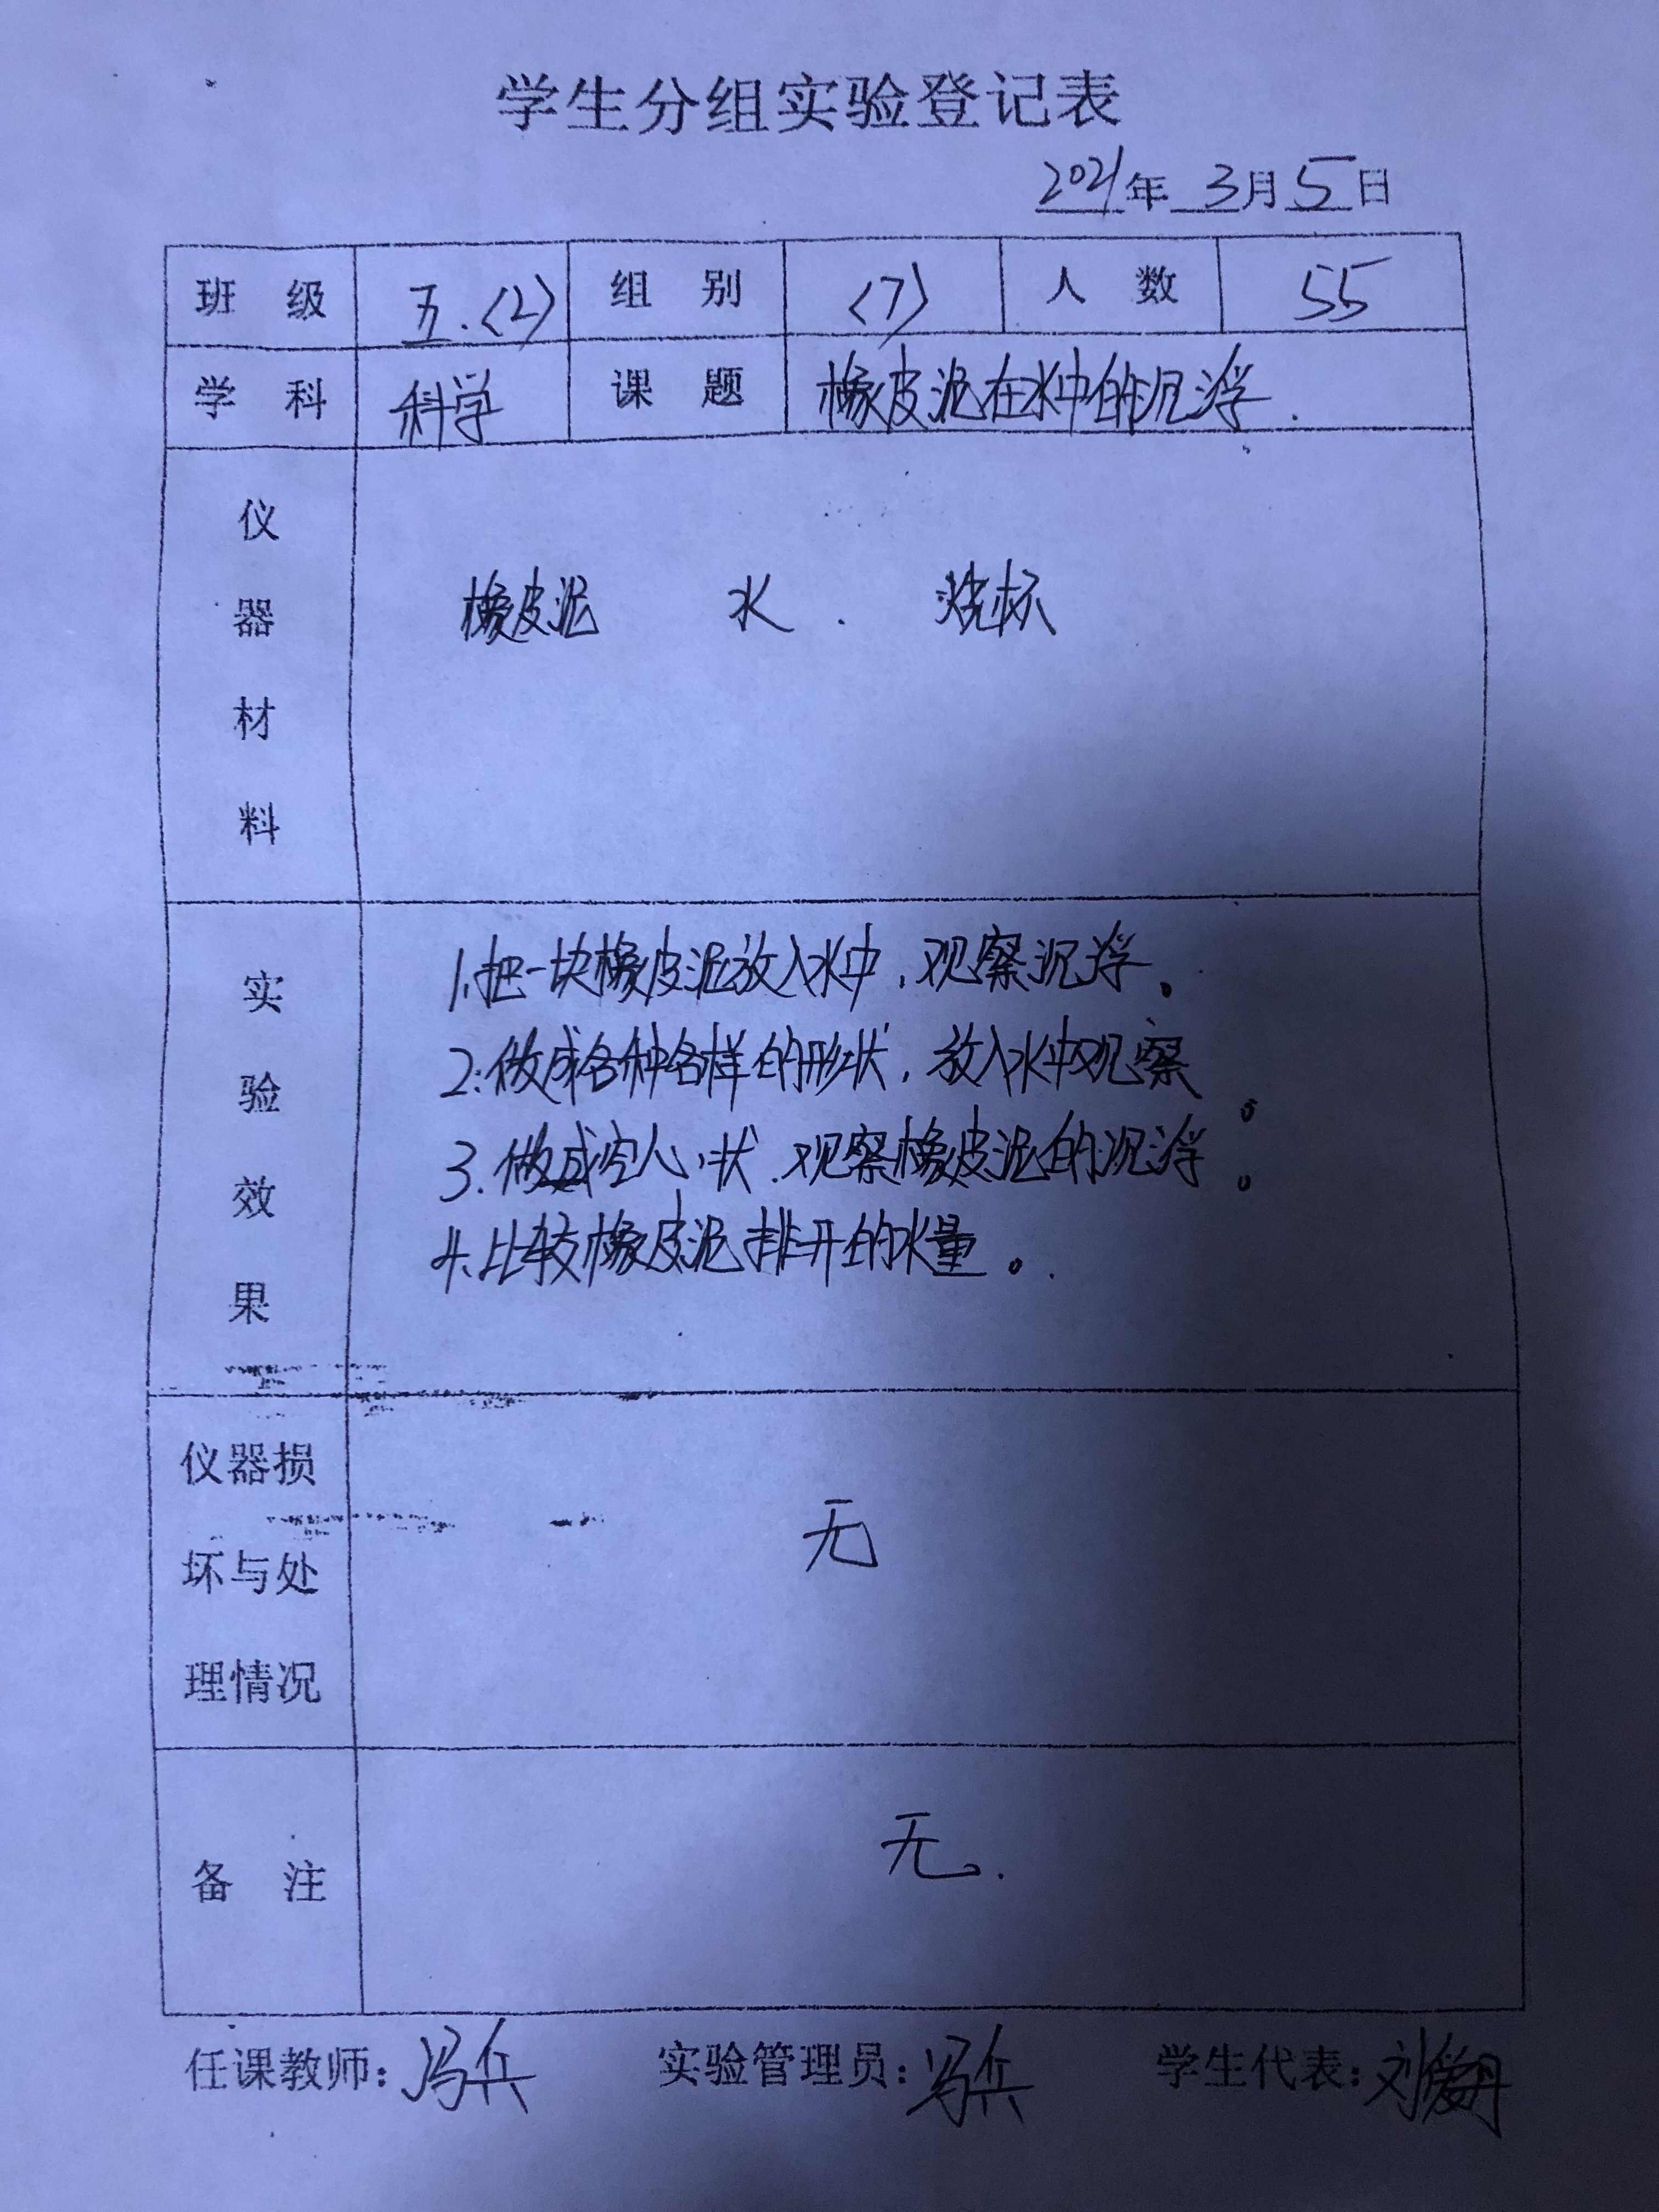 学生分组实验登记表
2021年 3月5日
班 级 五.(2) 组 别 (7) 人 数 55
学 科 科学 课 题 橡皮泥在水中的沉浮.
仪器材料 橡皮泥 水. 烧杯
实验效果
1.把一块橡皮泥放入水中,观察沉浮。
2.做成各种各样的形状,放入水中观察。
3.做成空心状.观察橡皮泥的沉浮。
4.比较橡皮泥排开的水量。
仪器损
坏与处 无
理情况
备 注 无.
任课教师:冯兵 实验管理员:冯兵 学生代表:刘爱丹